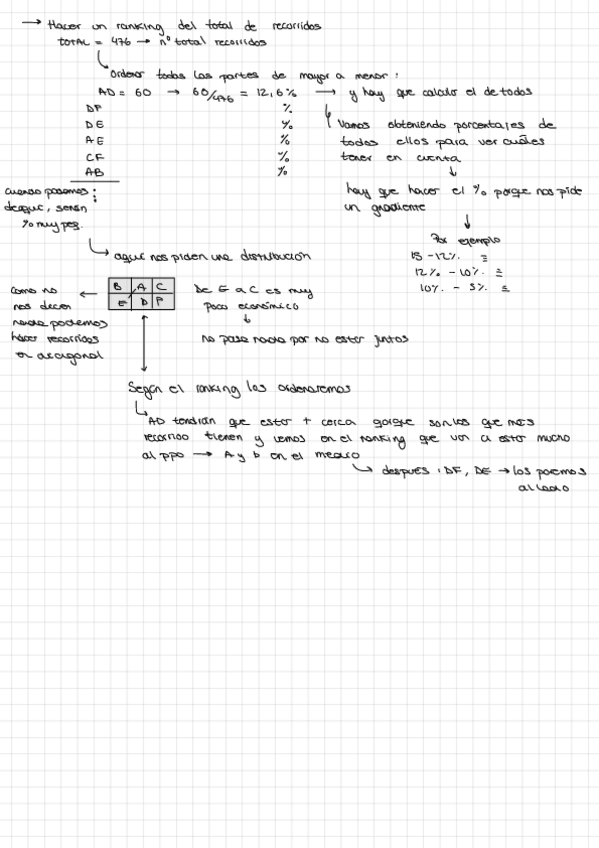 → Hacer un ranking del total de recorridos
TOTAL = 476 → nº total recorridos
Ordenar todas las partes de mayor a menor:
AD = 60 → 60/476 = 12,6% → y hay que calcular el de todos
DF %
DE %
AE %
CF %
AB %
Vamos obteniendo porcentajes de
todos ellos para ver cuáles
tener en cuenta
↓
hay que hacer el % porque nos pide
un gradiente
↓
Por ejemplo
15 - 12%. =
12%. - 10%. =
10%. - 5%. =
cuando pasemos
de aquí, serán
% muy peq.
→ aquí nos piden una distribución
Como no
nos dicen
nada podemos
hacer recorridos
en diagonal
B A C
E D F
De E a C es muy
poco económico
↓
no pasa nada por no estar juntos
Según el ranking las ordenaremos
AD tendrían que estar + cerca porque son los que más
recorrido tienen y vemos en el ranking que van a estar mucho
al ppo → A y D en el medio
→ después: DF, DE → los ponemos
al lado